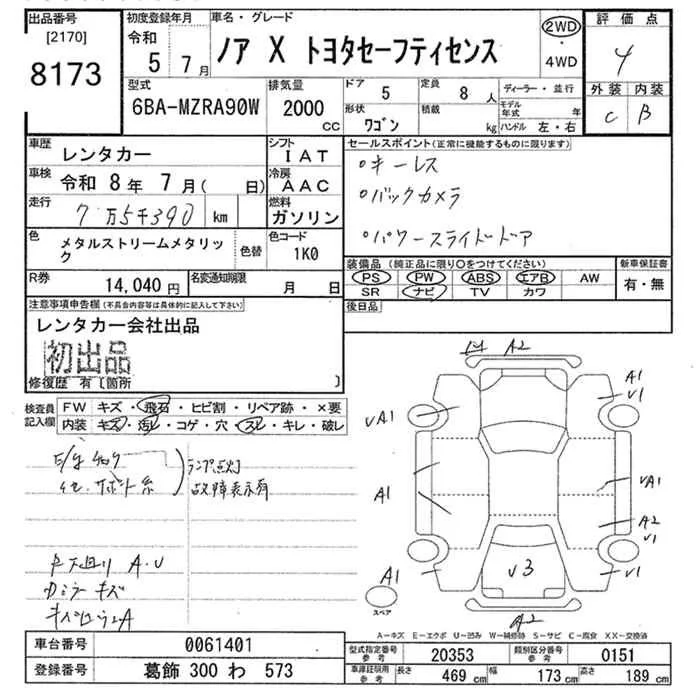 出品番号
[2170]
8173
初度登録年月
令和
5 7月
車名・グレード
ノア X トヨタセーフティセンス
2WD
・
4WD
評価点
4
外装 内装
C B
型式
6BA-MZRA90W
排気量
2000
CC
ドア
5
定員
8 人
形状
ワゴン
積載
kg
ディーラー・並行
モデル年式 年
ハンドル 左・右
車歴
レンタカー
シフト
IAT
車検
令和 8年 7月( 日)
冷房
AAC
走行
7万5千390 km
燃料
ガソリン
色
メタルストリームメタリック
色替
色コード
1K0
R券
14,040円
名変通知期限
月 日
セールスポイント(正常に機能するものに限ります)
○キーレス
○バックカメラ
○パワースライドドア
装備品(純正品に限り○をつけてください)
PS PW ABS エアB AW
SR ナビ TV カワ
新車保証書
有・無
後日品
注意事項申告欄(不具合内容等は具体的に記入して下さい)
レンタカー会社出品
初出品
修復歴 有〔箇所 〕
検査員記入欄
FW キズ・飛石・ヒビ割・リペア跡・×要
内装 キズ・汚レ・コゲ・穴・スレ・キレ・破レ
ランプ点灯
故障表示有
A2
A1
V1
UA1
A1
UA1
A2
V1
A1
V3
V1
A2
スペア
A-キズ E-エクボ U-凹み W-補修跡 S-サビ C-腐食 XX-交換済
車台番号
0061401
登録番号
葛飾 300 わ 573
型式指定番号
参考
20353
類別区分番号
参考
0151
車庫証明用
参考
長さ
469 cm
幅
173 cm
高さ
189 cm